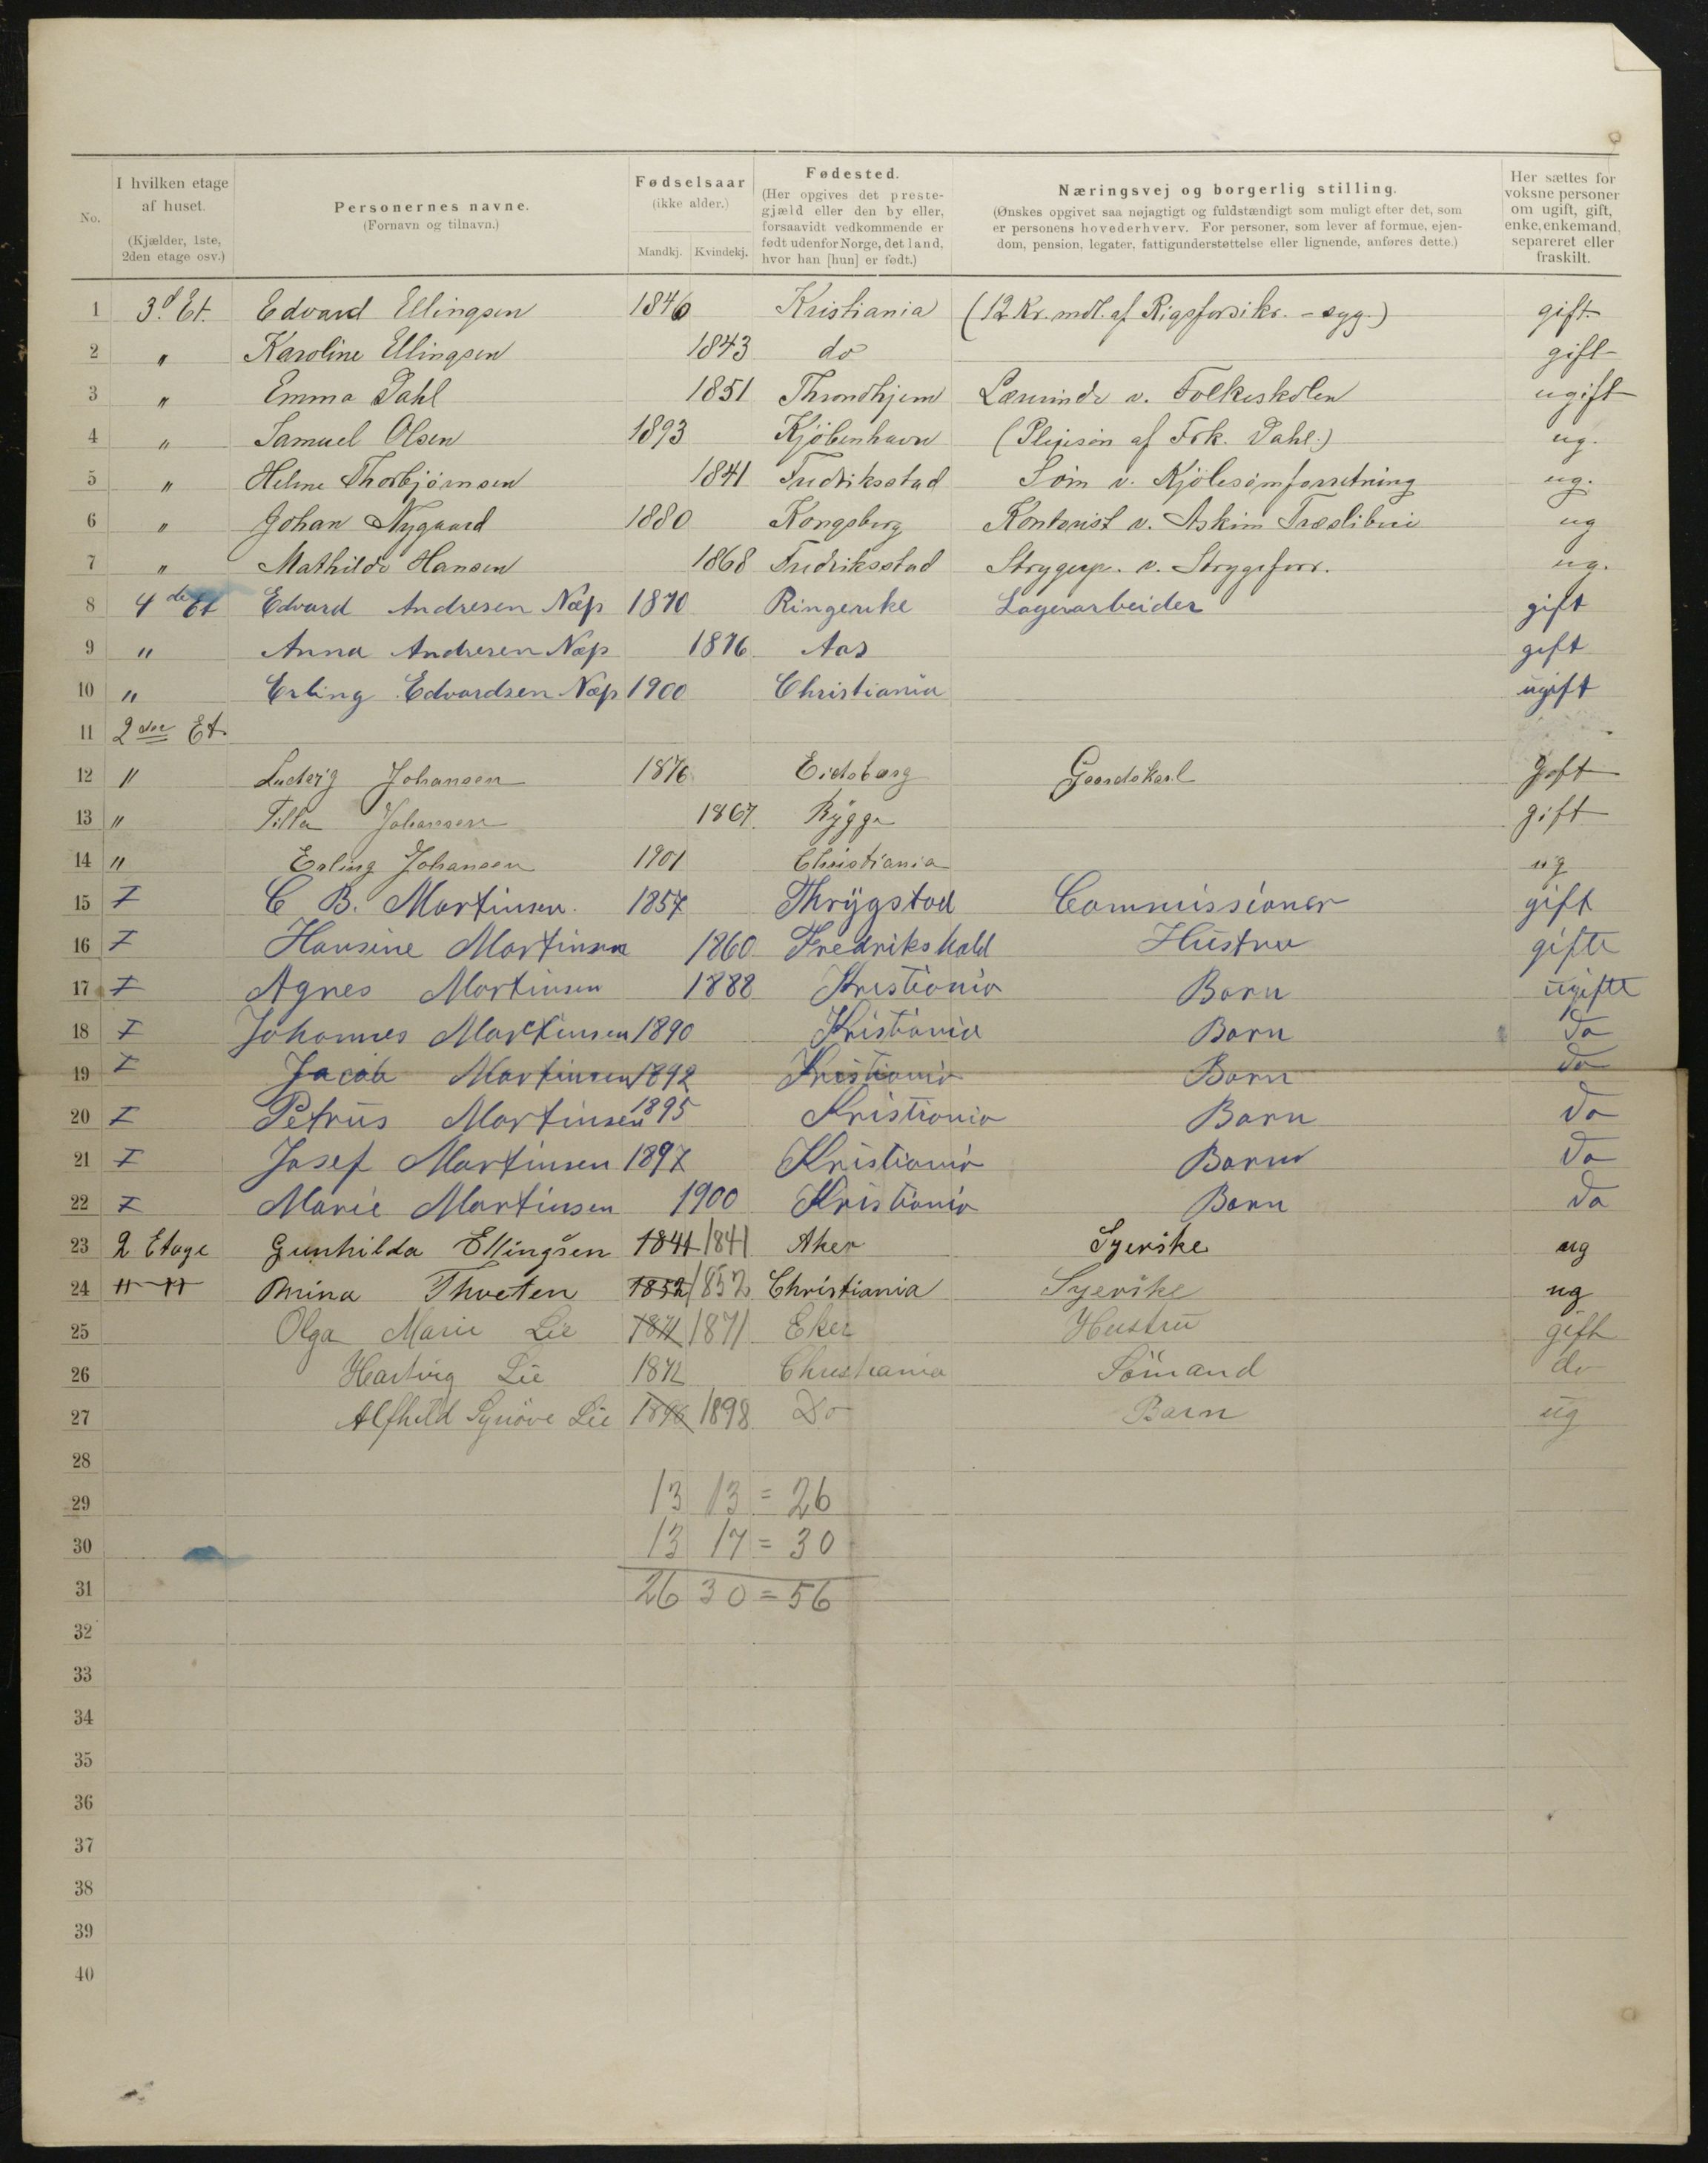 No.
I hvilken etage af huset. (Kjælder, 1ste, 2den etage osv.)
Personernes navne. (Fornavn og tilnavn.)
Fødselsaar (ikke alder.) Mandkj. Kvindekj.
Fødested. (Her opgives det prestegjæld eller den by eller, forsaavidt vedkommende er født udenfor Norge, det land, hvor han [hun] er født.)
Næringsvej og borgerlig stilling. (Ønskes opgivet saa nøjagtigt og fuldstændigt som muligt efter det, som er personens hovederhverv. For personer, som lever af formue, ejendom, pension, legater, fattigunderstøttelse eller lignende, anføres dette.)
Her sættes for voksne personer om ugift, gift, enke, enkemand, separeret eller fraskilt.
1 3d. Et. Edvard Ellingsen 1846 Kristiania (12 Kr. mdl. af Rigsforsikr. - syg.) gift
2 " Karoline Ellingsen 1843 do gift
3 " Emma Dahl 1851 Throndhjem Lærerinde v. Folkeskolen ugift
4 " Samuel Olsen 1893 Kjøbenhavn (Plejesøn af Frk. Dahl.) ug.
5 " Helene Thorbjørnsen 1841 Fredriksstad Søm v. Kjolesømforretning ug.
6 " Johan Nygaard 1880 Kongsberg Kontorist v. Askim Træsliberi ug
7 " Mathilde Hansen 1868 Fredriksstad Strygerp. v. Strygeforr. ug.
8 4de Et Edvard Andresen Næp 1870 Ringerike Lagerarbeider gift
9 " Anna Andresen Næp 1876 Aas gift
10 " Erling Edvardsen Næp 1900 Christiania ugift
11 2den Et.
12 " Ludvig Johansen 1876 Eidsberg Gaardskarl Gift
13 " Tilla Johansen 1867. Rygge gift
14 " Erling Johansen 1901 Christiania ug
15 I C B. Martinsen. 1857 Thrygstad Commissionær gift
16 I Hansine Martinsen 1860 Fredrikshald Hustru gifte
17 I Agnes Martinsen 1888 Kristiania Barn ugifte
18 I Johannes Martinsen 1890 Kristiania Barn do
19 I Jacob Martinsen 1892 Kristiania Barn do
20 I Petrus Martinsen 1895 Kristiania Barn do
21 I Josef Martinsen 1897 Kristiania Barn do
22 I Marie Martinsen 1900 Kristiania Barn do
23 2 Etage Gunhilda Ellingsen 1841 1841 Aker Syerske ug
24 " " Mina Thveten 1852 1852 Christiania Syerske ug
25 Olga Marie Lie 1871 1871 Eker Hustru gift
26 Hartvig Lie 1872 Christiania Sömand do
27 Alfhild Synöve Lie 1898 Do Barn ug
28
29 13 13 = 26
30 13 17 = 30
31 26 30 = 56
32
33
34
35
36
37
38
39
40